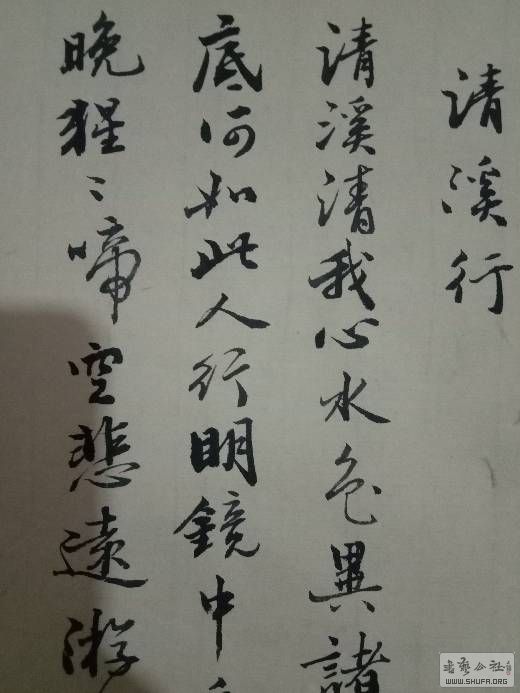 清溪行
清溪清我心水色異諸
底何如此人行明鏡中
晚猩〻啼空悲遠游
書藝公社
WWW.SHUFA.ORG